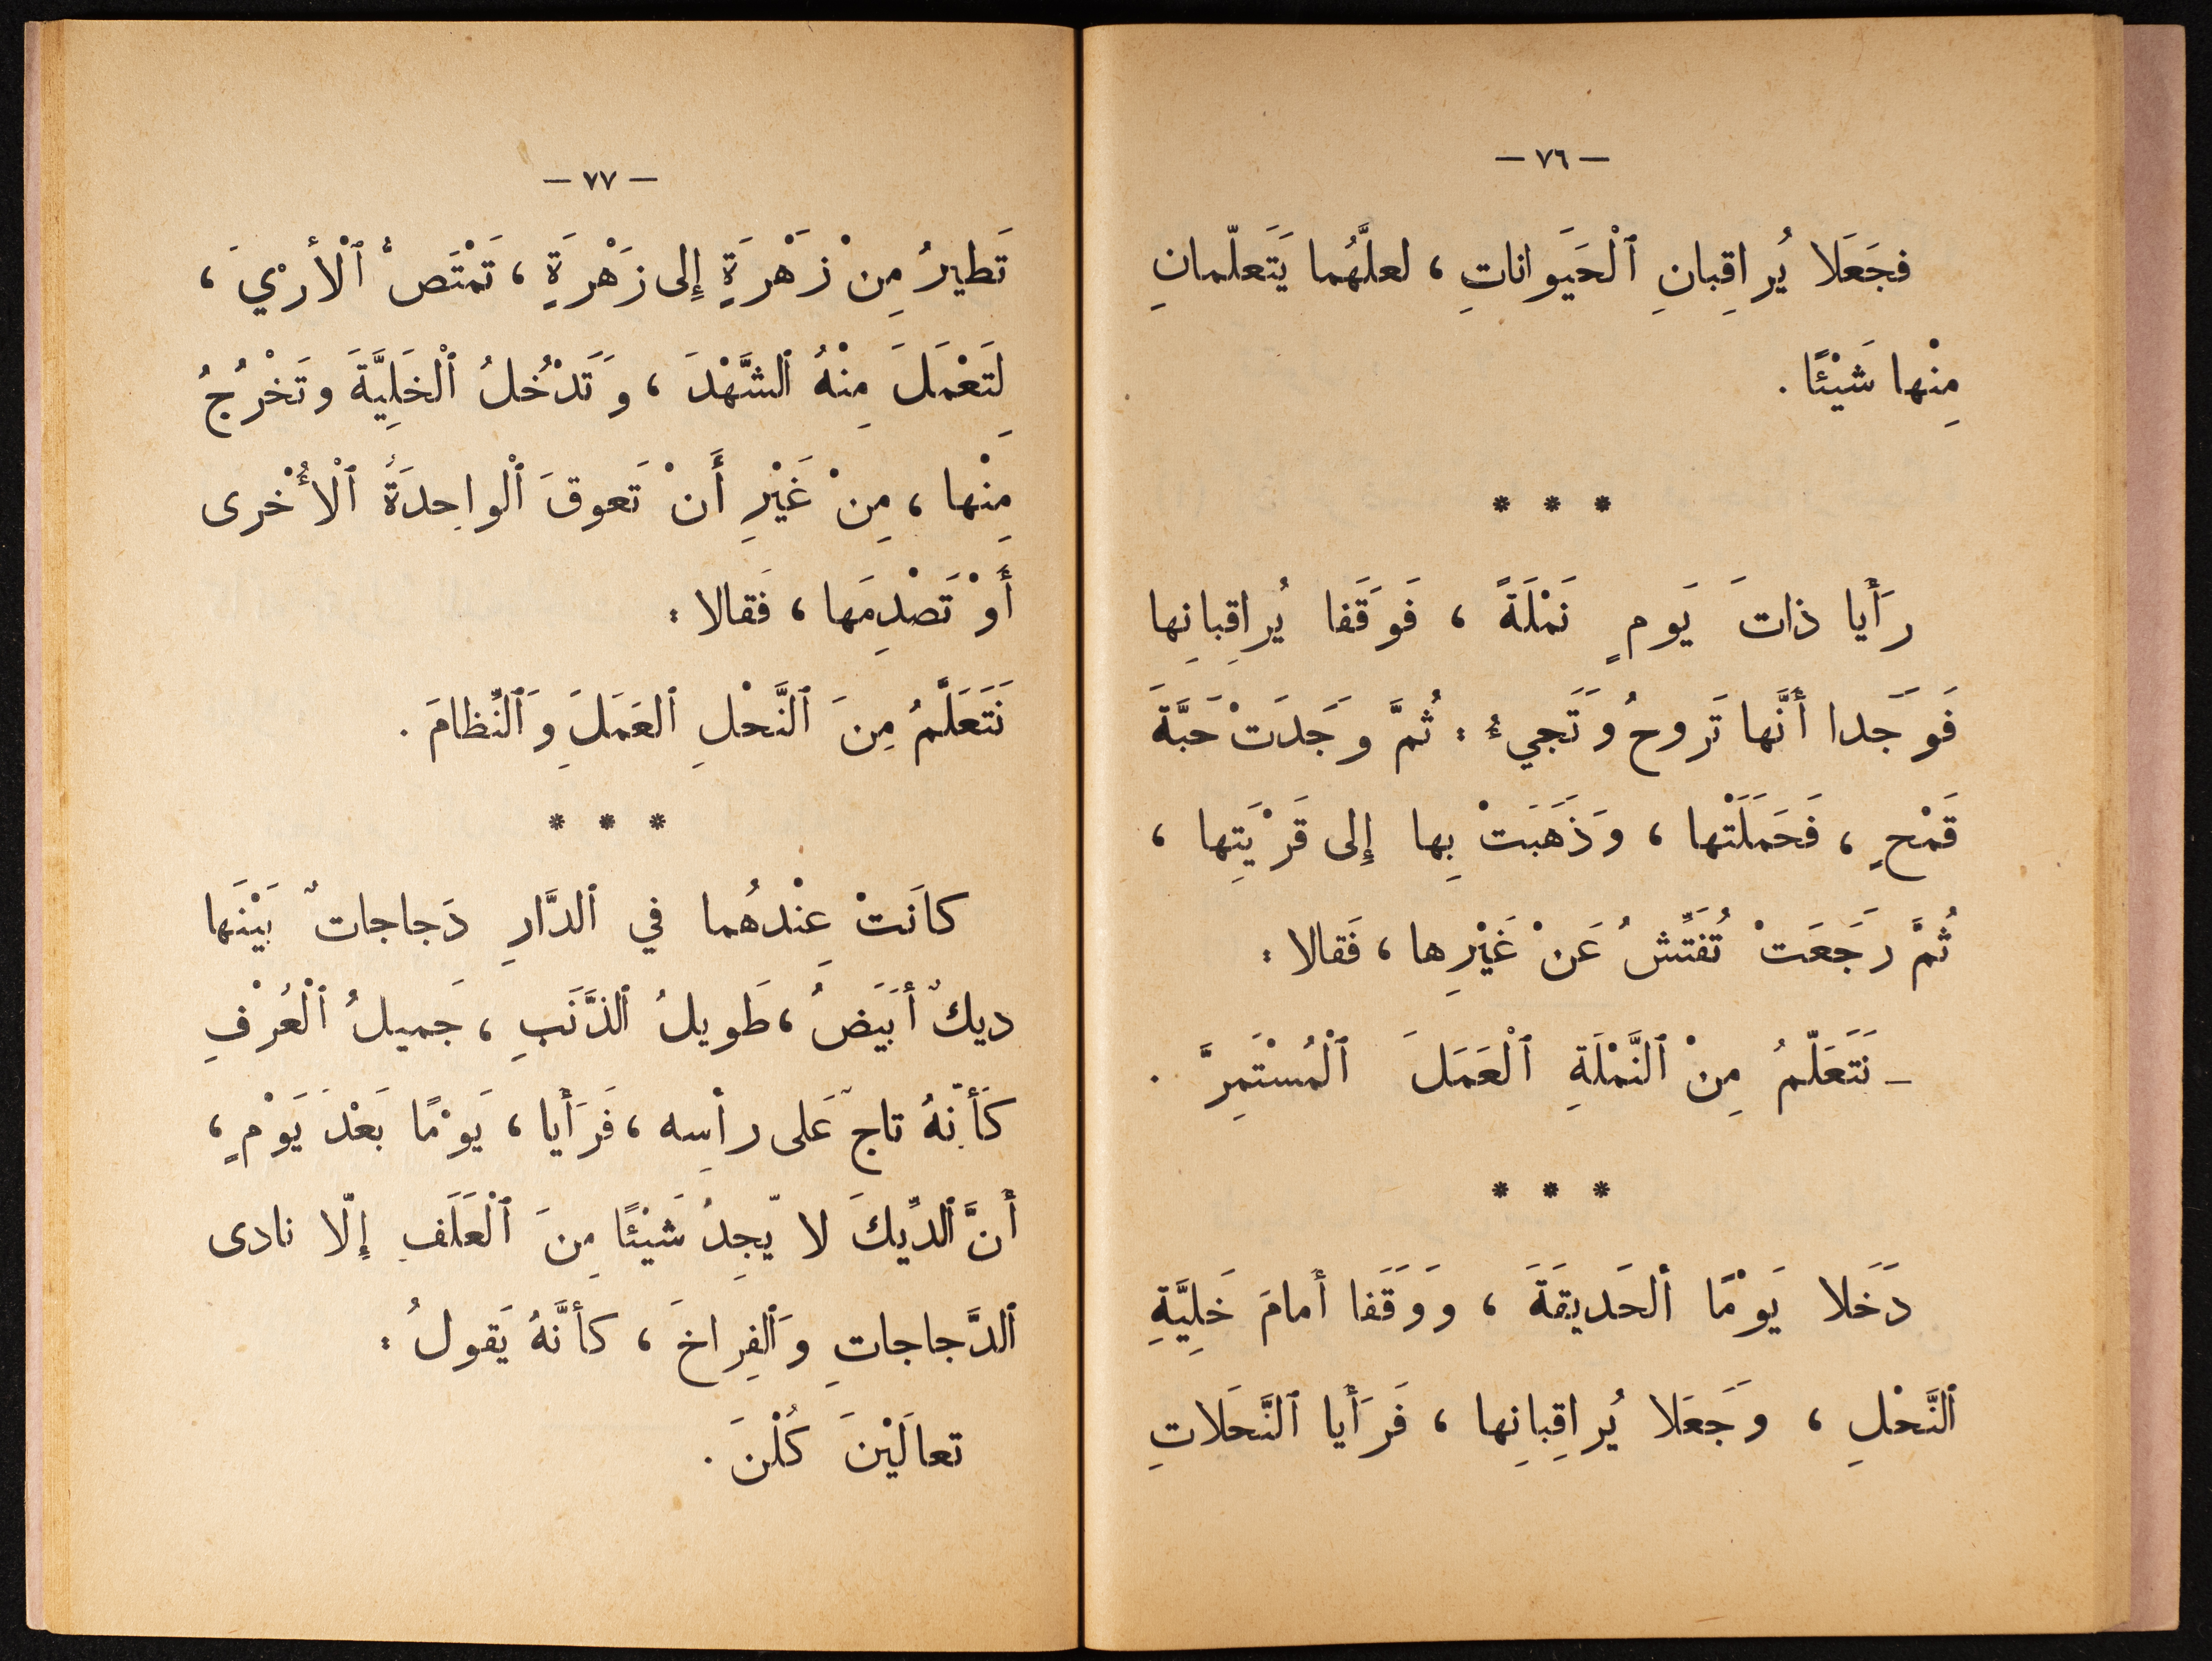 — ٧٦ —
فجَعَلا يُراقِبانِ ٱلْحَيَوانَاتِ ، لعلَّهُما يَتَعلّمانِ
مِنْها شَيْئًا .
* * *
رَأَيا ذاتَ يَومٍ نَمْلَةً ، فَوَقَفا يُراقِبانِها
فَوَجَدا أَنَّها تَروحُ وَتَجيءُ : ثُمَّ وَجَدَتْ حَبَّةَ
قَمْحٍ ، فَحَمَلَتْها ، وَذَهَبَتْ بِها إِلى قَرْيَتِها ،
ثُمَّ رَجَعَتْ تُفَتِّشُ عَنْ غَيْرِها ، فَقالا :
— نَتَعَلّمُ مِنْ ٱلنَّمْلَةِ ٱلْعَمَلَ ٱلْمُسْتَمِرَّ .
* * *
دَخَلا يَوْمًا ٱلحَديقَةَ ، وَوَقَفا أَمامَ خَلِيَّةِ
ٱلنَّحْلِ ، وَجَعَلا يُراقِبانِها ، فَرَأَيا ٱلنَّحَلاتِ
— ٧٧ —
تَطيرُ مِنْ زَهْرَةٍ إِلى زَهْرَةٍ ، تَمْتَصُّ ٱلْأَرْيَ ،
لِتَعْمَلَ مِنْهُ ٱلشَّهْدَ ، وَتَدْخُلُ ٱلْخَلِيَّةَ وتَخْرُجُ
مِنْها ، مِنْ غَيْرِ أَنْ تَعوقَ ٱلْواحِدَةُ ٱلْأُخْرى
أَوْ تَصْدِمَها ، فَقالا :
نَتَعَلَّمُ مِنَ ٱلنَّحْلِ ٱلعَمَلَ وَٱلنِّظامَ .
* * *
كانَتْ عِنْدَهُما في ٱلدَّارِ دَجاجاتٌ بَيْنَها
ديكٌ أَبَيَضُ ، طَويلُ ٱلذَّنَبِ ، جَميلُ ٱلْعُرْفِ
كَأنّهُ تاجٌ عَلى رأسِه ، فَرَأَيا ، يَوْمًا بَعْدَ يَوْمٍ ،
أَنَّ ٱلدِّيكَ لا يّجِدُ شَيْئًا مِنَ ٱلْعَلَفِ إِلّا نادى
ٱلدَّجاجاتِ وَٱلفِراخَ ، كأَنَّهُ يَقولُ :
تعالَيْنَ كُلْنَ .